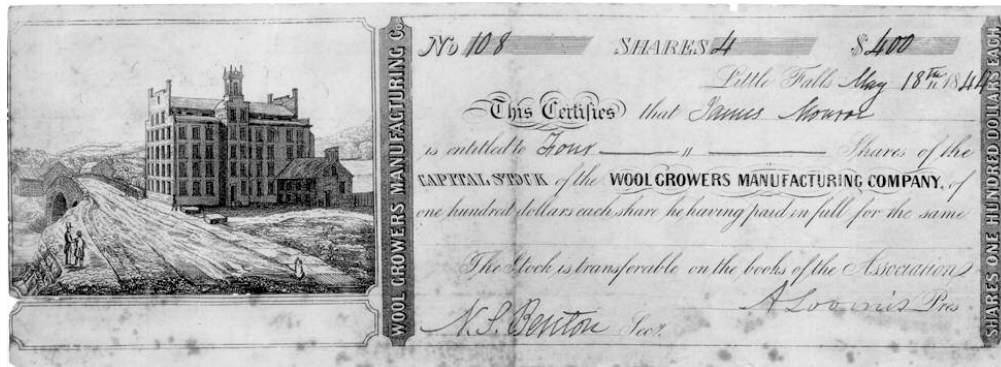 WOOL GROWERS MANUFACTURING Co
No 108 SHARES 4 $400
Little Falls May 18th 1844
This Certifies that James Monroe
is entitled to Four " Shares of the
CAPITAL STOCK of the WOOL GROWERS MANUFACTURING COMPANY, of
one hundred dollars each share he having paid in full for the same
The Stock is transferable on the books of the Association
A Loomis Pres
N. S. Benton Secy.
SHARES ONE HUNDRED DOLLARS EACH